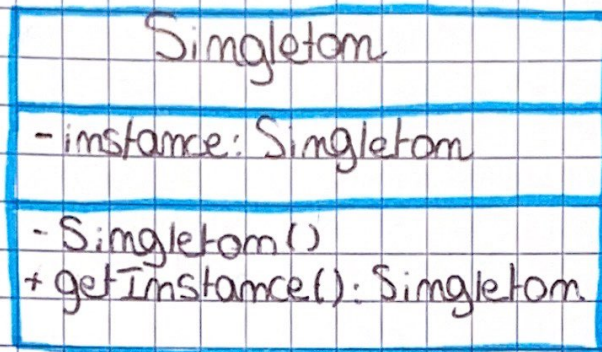 Singleton
- instance: Singleton
- Singleton()
+ getInstance(): Singleton